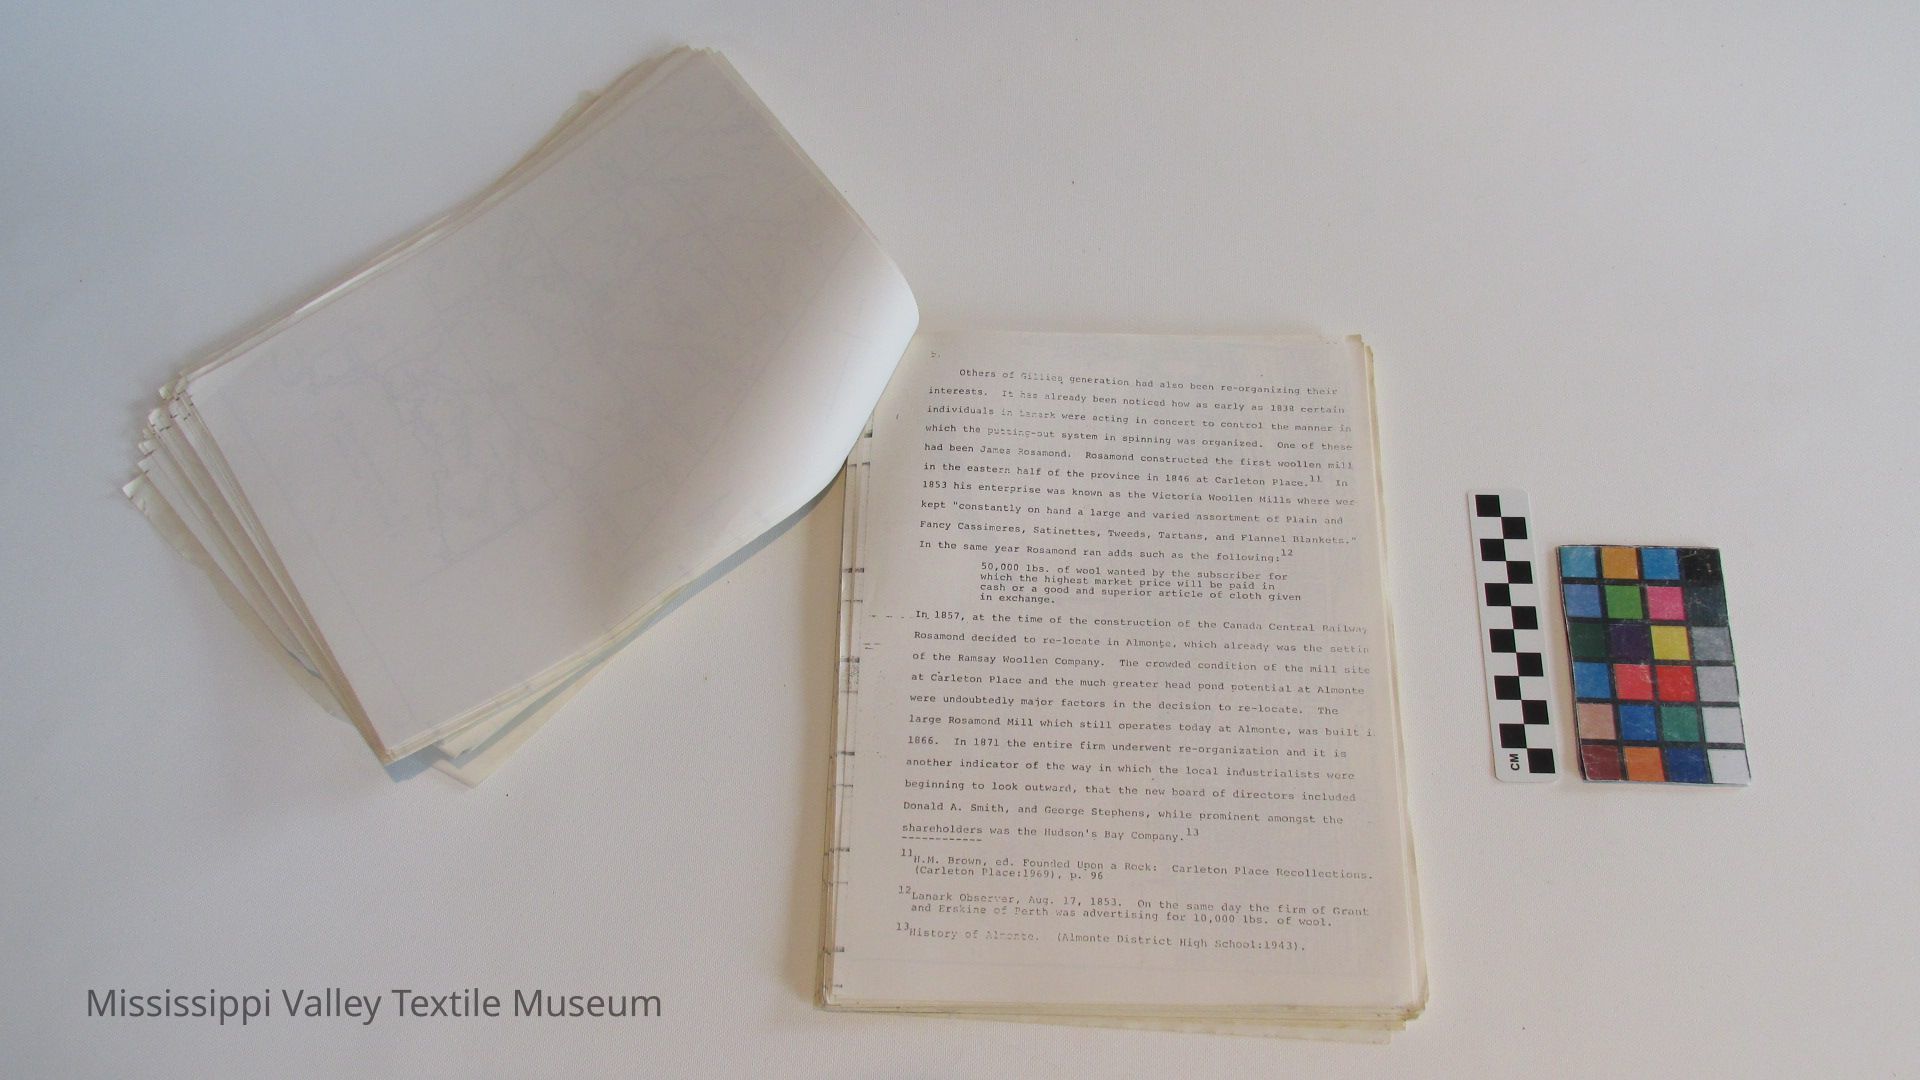 Others of Gillies generation had also been re-organizing their
interests. It has already been noticed how as early as 1838 certain
individuals in Lanark were acting in concert to control the manner in
which the putting-out system in spinning was organized. One of these
had been James Rosamond. Rosamond constructed the first woollen mill
in the eastern half of the province in 1846 at Carleton Place.11 In
1853 his enterprise was known as the Victoria Woollen Mills where wer
kept "constantly on hand a large and varied assortment of Plain and
Fancy Cassimeres, Satinettes, Tweeds, Tartans, and Flannel Blankets."
In the same year Rosamond ran adds such as the following:12
50,000 lbs. of wool wanted by the subscriber for
which the highest market price will be paid in
cash or a good and superior article of cloth given
in exchange.
In 1857, at the time of the construction of the Canada Central Railway
Rosamond decided to re-locate in Almonte, which already was the settin
of the Ramsay Woollen Company. The crowded condition of the mill site
at Carleton Place and the much greater head pond potential at Almonte
were undoubtedly major factors in the decision to re-locate. The
large Rosamond Mill which still operates today at Almonte, was built i
1866. In 1871 the entire firm underwent re-organization and it is
another indicator of the way in which the local industrialists were
beginning to look outward, that the new board of directors included
Donald A. Smith, and George Stephens, while prominent amongst the
shareholders was the Hudson's Bay Company.13
11H.M. Brown, ed. Founded Upon a Rock: Carleton Place Recollections.
(Carleton Place:1969), p. 96
12Lanark Observer, Aug. 17, 1853. On the same day the firm of Grant
and Erskine of Perth was advertising for 10,000 lbs. of wool.
13History of Almonte. (Almonte District High School:1943).
CM
Mississippi Valley Textile Museum